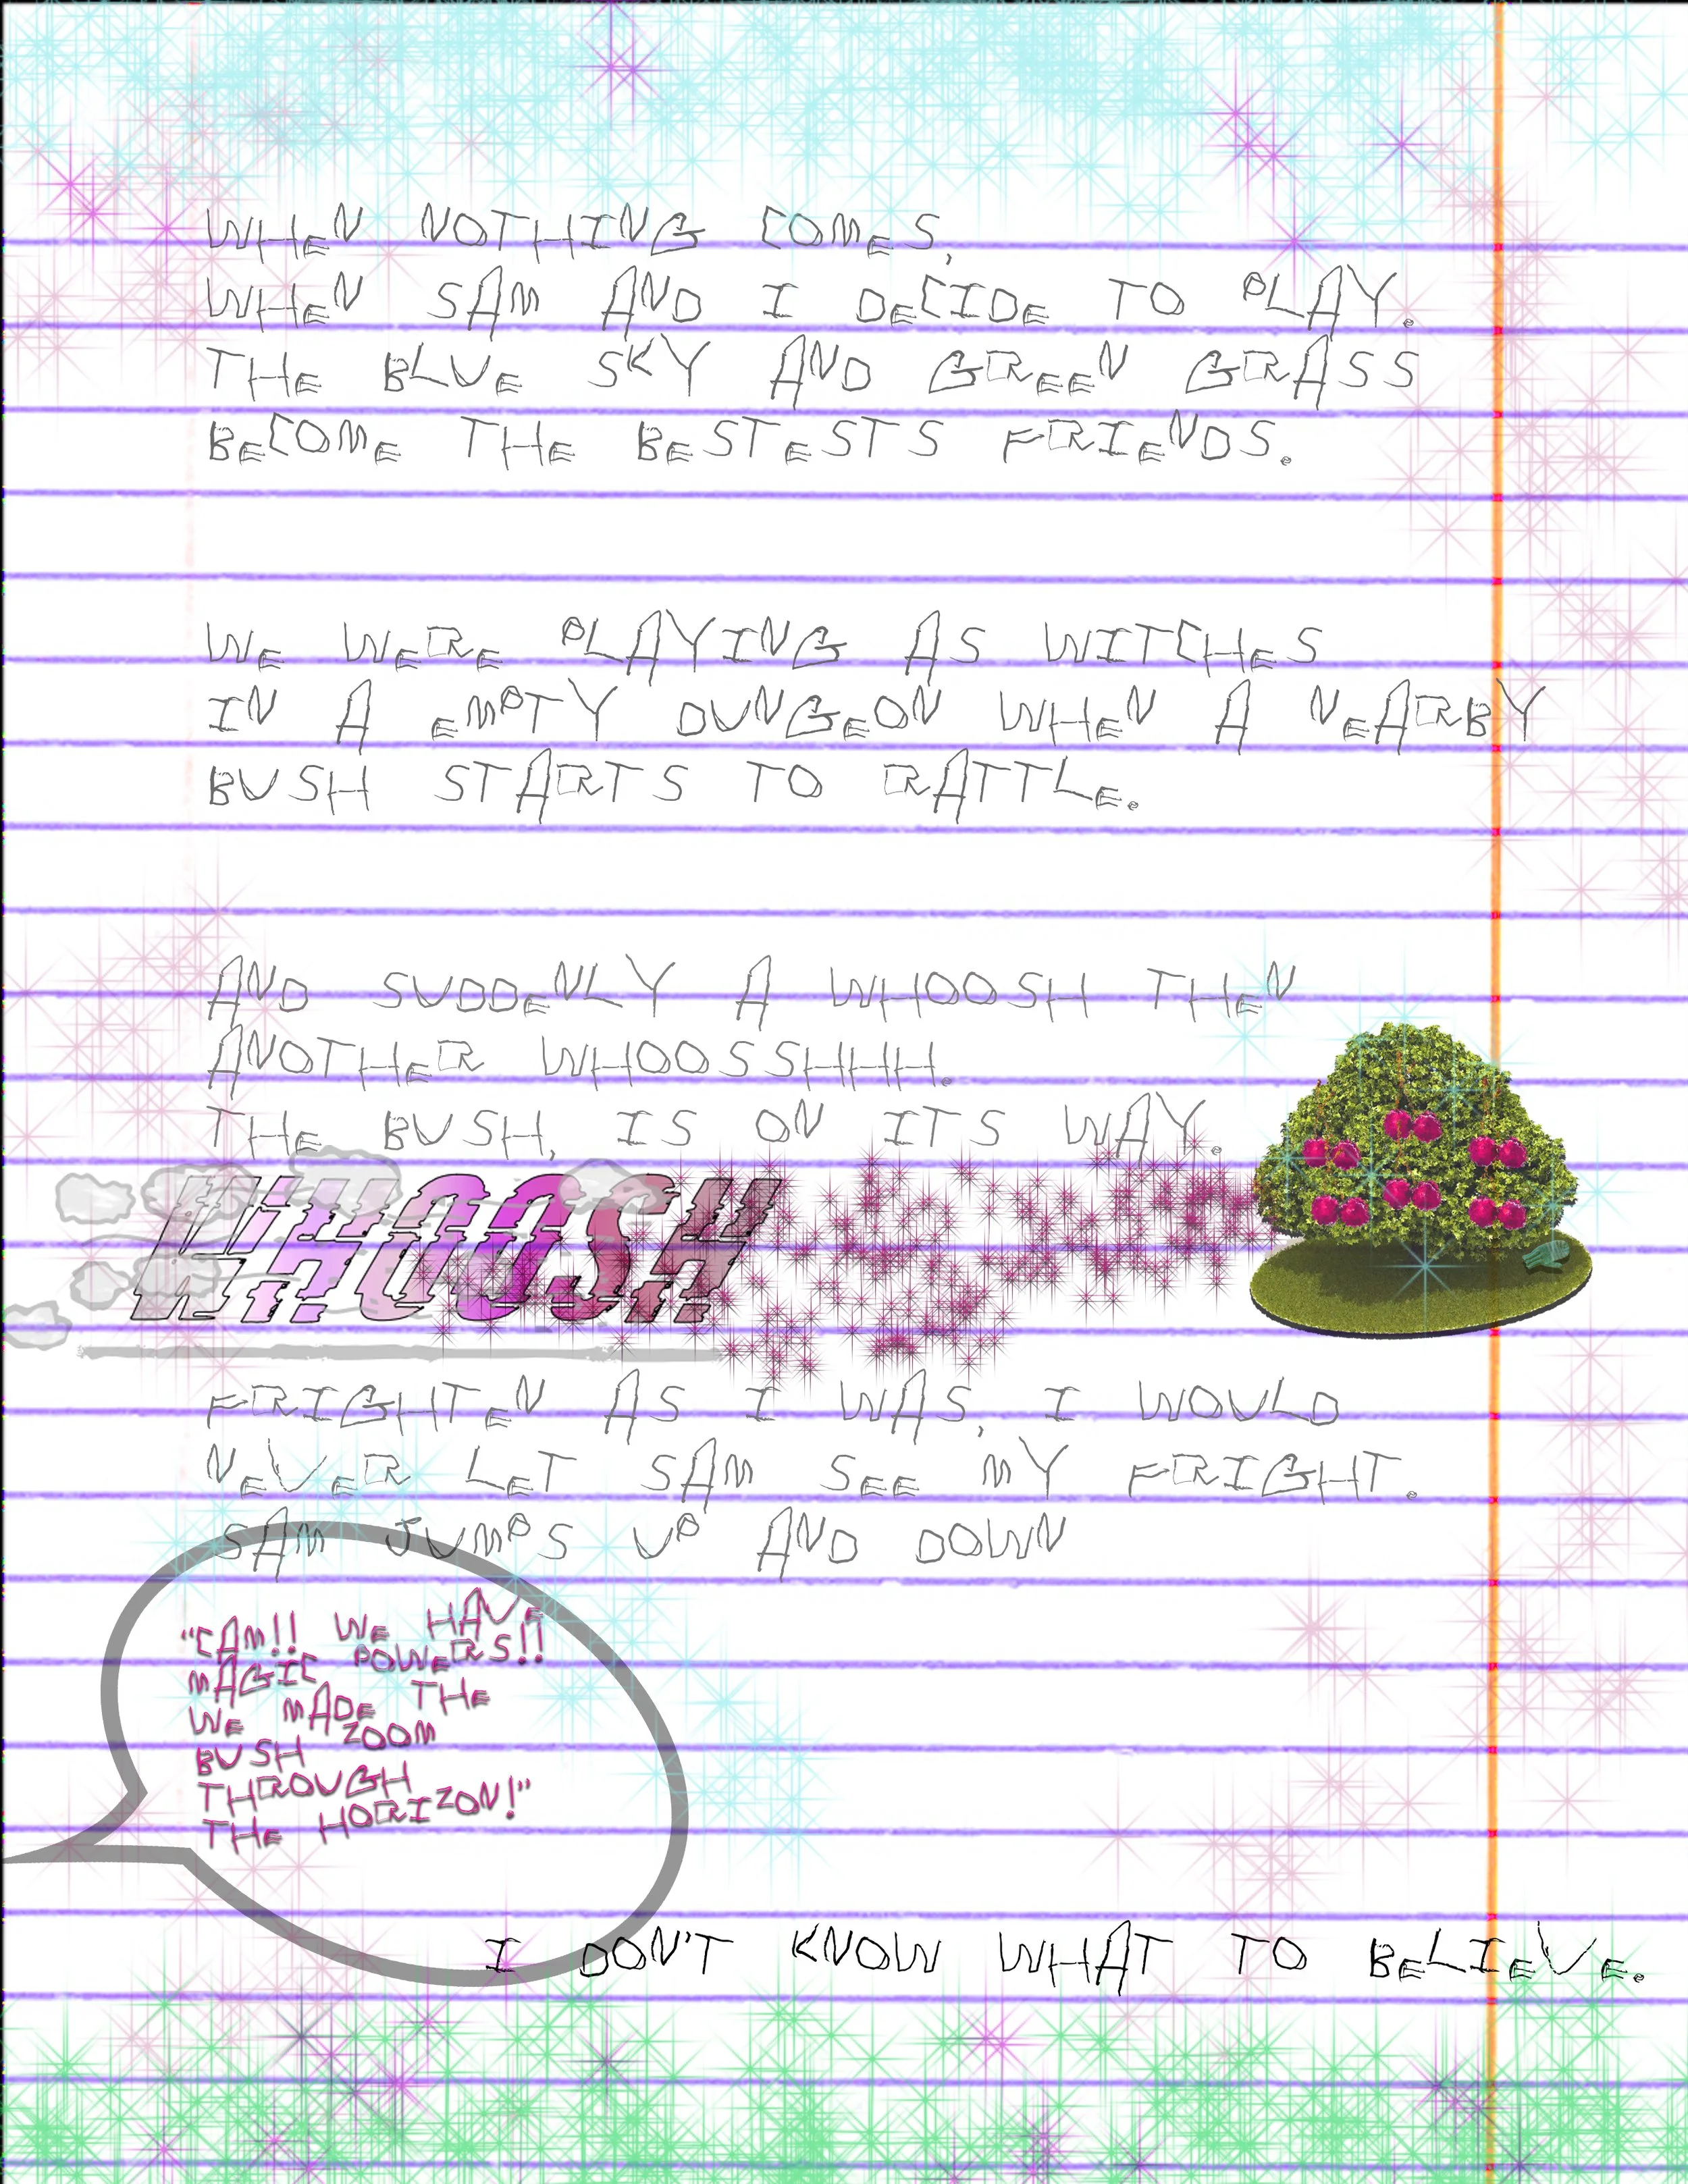 WHEN NOTHING COMES,
WHEN SAM AND I DECIDE TO PLAY.
THE BLUE SKY AND GREEN GRASS
BECOME THE BESTESTS FRIENDS.
WE WERE PLAYING AS WITCHES
IN A EMPTY DUNGEON WHEN A NEARBY
BUSH STARTS TO RATTLE.
AND SUDDENLY A WHOOSH THEN
ANOTHER WHOOSSHHH.
THE BUSH, IS ON ITS WAY.
WHOOSH
FRIGHTEN AS I WAS, I WOULD
NEVER LET SAM SEE MY FRIGHT.
SAM JUMPS UP AND DOWN
"CAM!! WE HAVE
MAGIC POWERS!!
WE MADE THE
BUSH ZOOM
THROUGH
THE HORIZON!"
I DON'T KNOW WHAT TO BELIEVE.